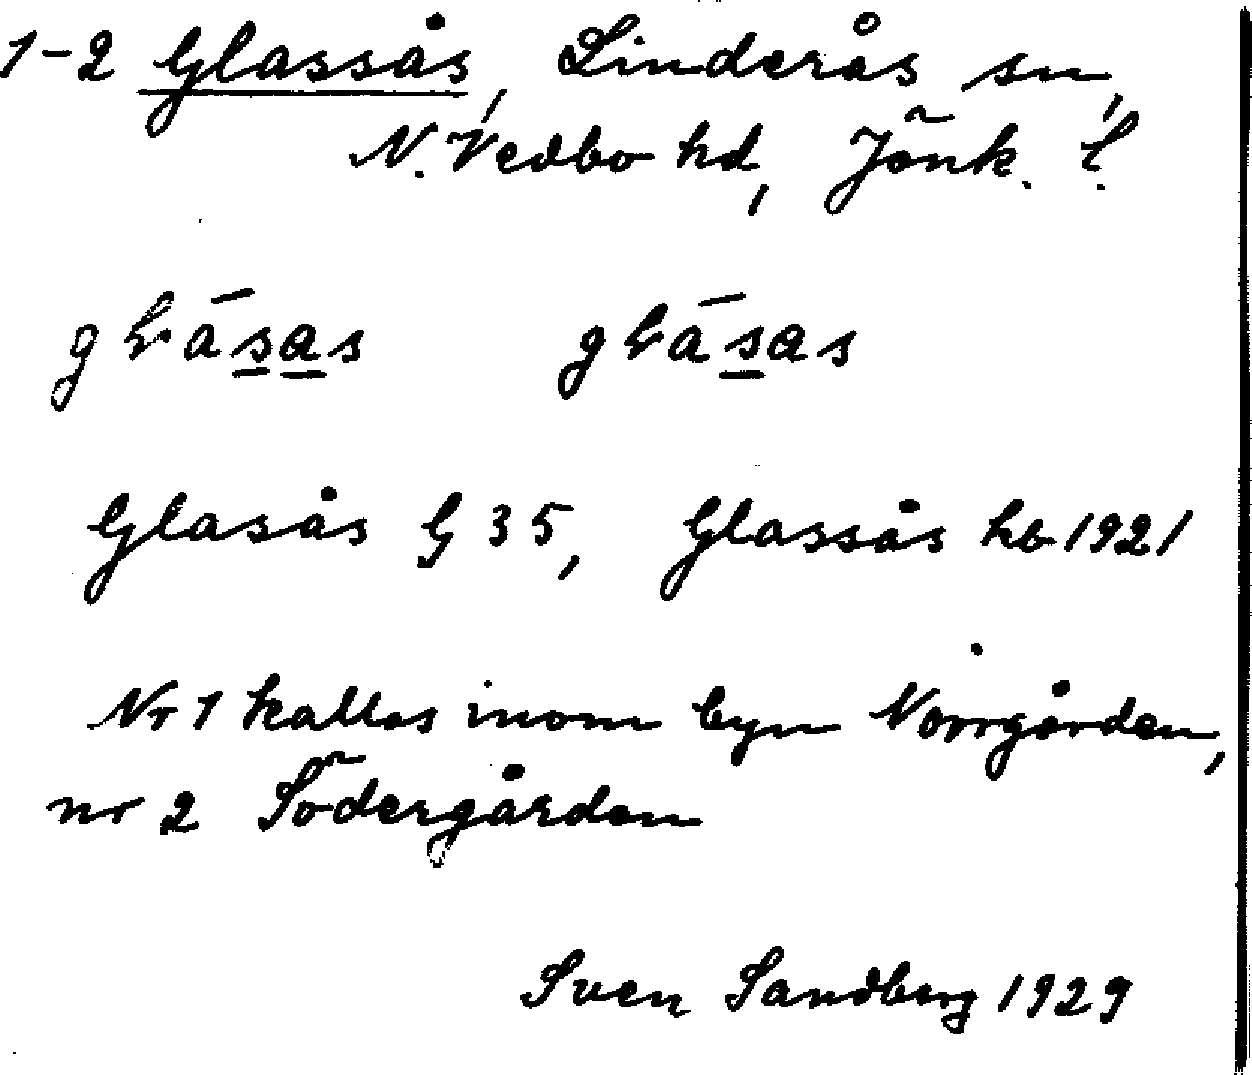 1-2 Glassås, Linderås sn,
N. Vedbo hd, Jönk. l.
Glasås G 35, Glassås hb 1921
Nr 1 kallas inom byn Norrgården,
nr 2 Södergården
Sven Sandberg 1929